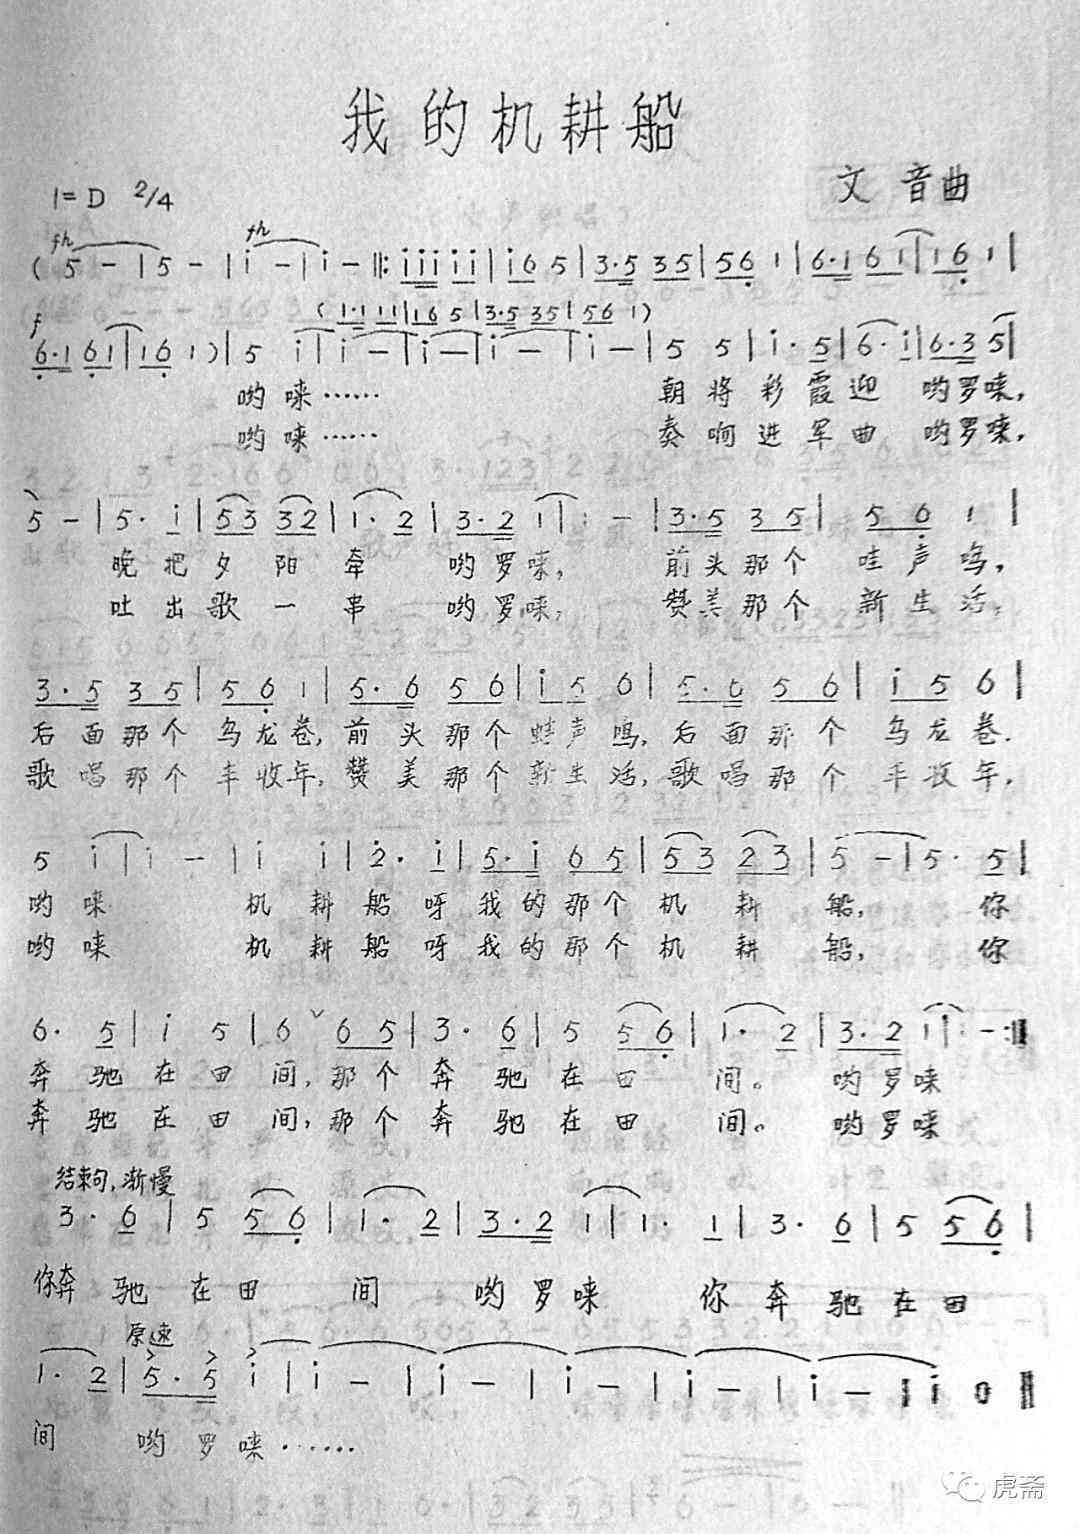 我的机耕船
1=D 2/4
文音曲
fh fh
( 5 - | 5 - | i - | i - ‖: i i i i i | i 6 5 | 3·5 3 5 | 5 6 1 | 6·1 6 1 | 1 6 1 |
f ( 1·1 1 1 | 1 6 5 | 3·5 3 5 | 5 6 1 )
6·1 6 1 | 1 6 1 ) | 5 i | i - | i - | i - | i - | 5 5 | i· 5 | 6· i | 6·3 5 |
哟唻…… 朝将彩霞迎 哟罗唻,
哟唻…… 奏响进军曲 哟罗唻,
5 - | 5· i | 5 3 3 2 | 1· 2 | 3·2 1 | 1 - | 3·5 3 5 | 5 6 1 |
晚把夕阳牵 哟罗唻, 前头那个哇声鸣,
吐出歌一串 哟罗唻, 赞美那个新生活,
3·5 3 5 | 5 6 1 | 5·6 5 6 | i 5 6 | 5·6 5 6 | i 5 6 |
后面那个乌龙卷, 前头那个蛙声鸣, 后面那个乌龙卷.
歌唱那个丰收年, 赞美那个新生活, 歌唱那个丰收年.
5 i | i - | i i | 2· i | 5·i 6 5 | 5 3 2 3 | 5 - | 5· 5 |
哟唻 机耕船呀我的那个机耕船, 你
哟唻 机耕船呀我的那个机耕船, 你
6· 5 | i 5 | 6 ˇ 6 5 | 3· 6 | 5 5 6 | 1· 2 | 3·2 1 | 1 - :‖
奔驰在田间, 那个奔驰在田间。 哟罗唻
奔驰在田间, 那个奔驰在田间。 哟罗唻
结束句, 渐慢
3· 6 | 5 5 6 | 1· 2 | 3·2 1 | 1· 1 | 3· 6 | 5 5 6 |
你奔驰在田间 哟罗唻 你奔驰在田
原速
1· 2 | 5·5 i | i - | i - | i - | i - | i - | i 0 ‖
间 哟罗唻……
虎斋